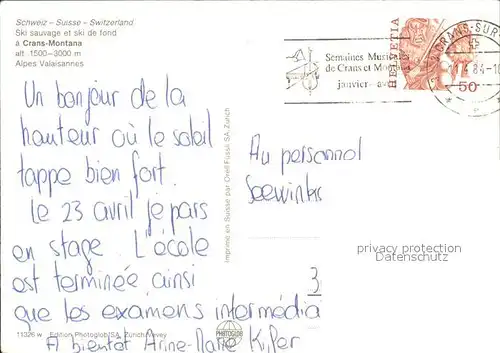 Schweiz – Suisse – Switzerland
Ski sauvage et ski de fond
à Crans-Montana
alt. 1500–3000 m
Alpes Valaisannes
Semaines Musical
de Crans et Montana
janvier-
HELVETIA
50
CRANS-SUR-
84-10
Un bonjour de la
hauteur où le soleil
tappe bien fort.
Le 23 avril je pars
en stage. L'école
est terminée ainsi
que les examens intermédia
A bientôt Anne-Marie
Au personnel
Seewinkes
3
Imprimé en Suisse par Orell Füssli SA, Zürich
privacy protection
Datenschutz
11326 w Edition Photoglob SA, Zürich/Vevey
PHOTOGLOB